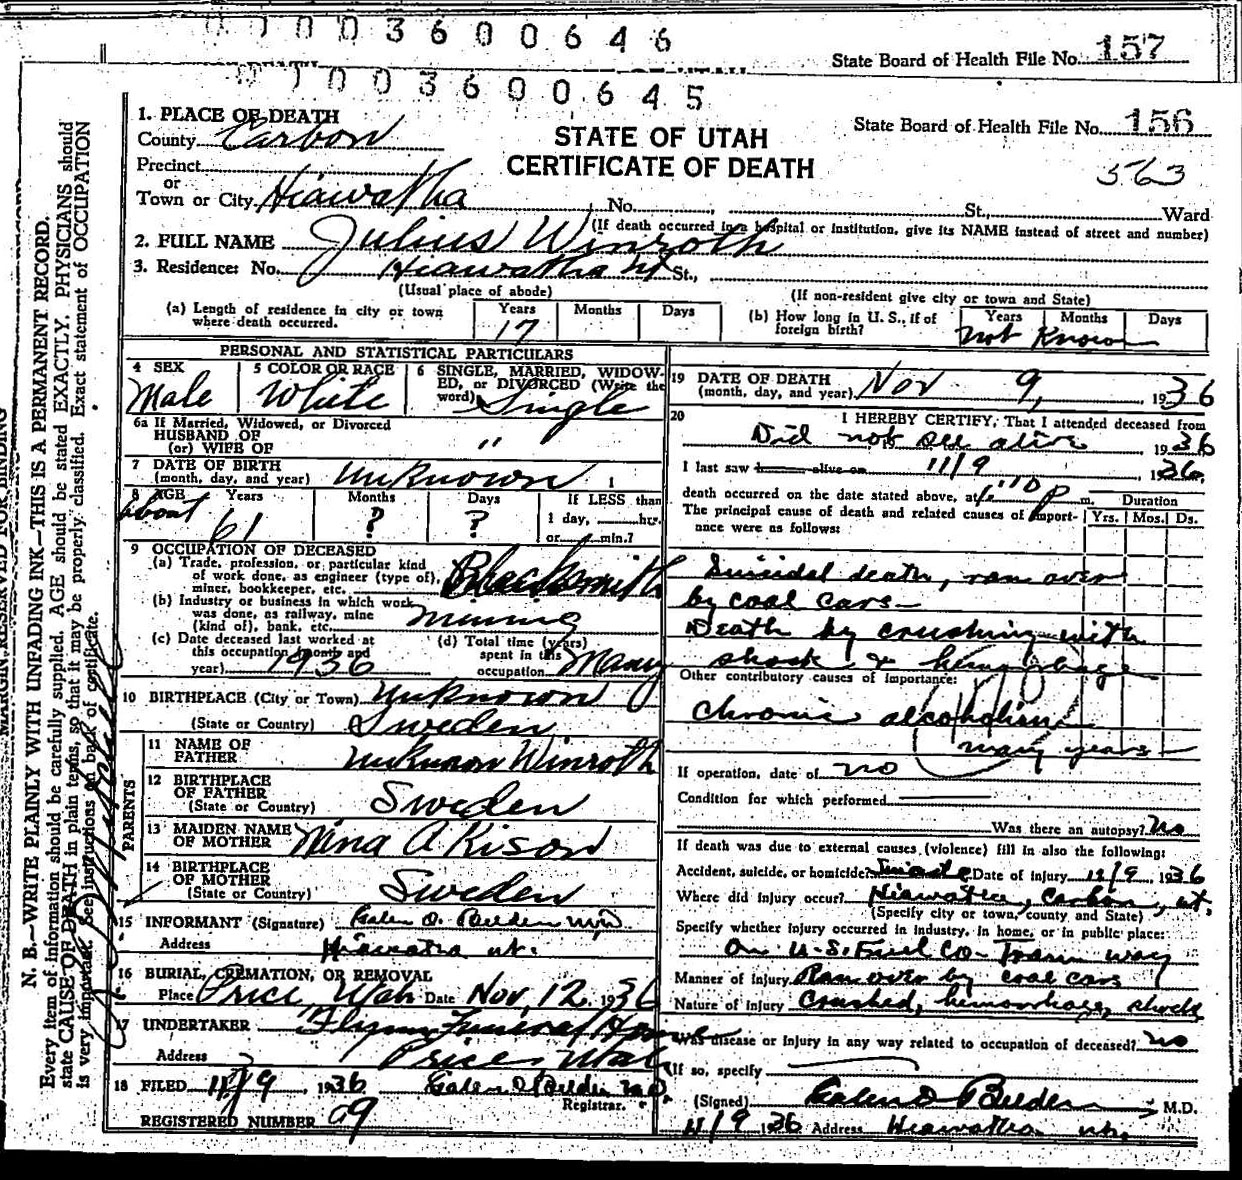 003600646
State Board of Health File No. 157
003600645
1. PLACE OF DEATH
County Carbon
STATE OF UTAH
CERTIFICATE OF DEATH
State Board of Health File No. 156
563
Precinct
or
Town or City Hiawatha No. St., Ward
(If death occurred in a hospital or institution, give its NAME instead of street and number)
2. FULL NAME Julius Winroth
3. Residence: No. Hiawatha Ut St.,
(Usual place of abode)
(If non-resident give city or town and State)
(a) Length of residence in city or town where death occurred. Years 17 Months Days
(b) How long in U. S., if of foreign birth? Years Months Days Not Known
PERSONAL AND STATISTICAL PARTICULARS
4 SEX Male
5 COLOR OR RACE White
6 SINGLE, MARRIED, WIDOWED, or DIVORCED (Write the word) Single
6a If Married, Widowed, or Divorced
HUSBAND OF
(or) WIFE OF "
7 DATE OF BIRTH
(month, day, and year) Unknown
8 AGE Years Months Days If LESS than
about 61 ? ? 1 day, hr.
or min.?
9 OCCUPATION OF DECEASED
(a) Trade, profession, or particular kind
of work done, as engineer (type of),
miner, bookkeeper, etc. Blacksmith
(b) Industry or business in which work
was done, as railway, mine
(kind of), bank, etc. mining
(c) Date deceased last worked at
this occupation (month and
year) 1936
(d) Total time (years)
spent in this
occupation Many
10 BIRTHPLACE (City or Town) Unknown
(State or Country) Sweden
PARENTS
11 NAME OF
FATHER Unknown Winroth
12 BIRTHPLACE
OF FATHER
(State or Country) Sweden
13 MAIDEN NAME
OF MOTHER Nina A Kison
14 BIRTHPLACE
OF MOTHER
(State or Country) Sweden
15 INFORMANT (Signature) Galen O. Belden MD
Address Hiawatha Ut.
16 BURIAL, CREMATION, OR REMOVAL
Place Price Utah Date Nov, 12, 1936
17 UNDERTAKER Flynn Funeral Home
Address Price Utah
18 FILED 11/9 1936 Galen O Belden M.D.
Registrar.
REGISTERED NUMBER 29
19 DATE OF DEATH
(month, day, and year) Nov 9, 1936
20 I HEREBY CERTIFY, That I attended deceased from
Did not see alive 1936
I last saw h alive on 11/9 1936
death occurred on the date stated above, at 1:10 p m.
The principal cause of death and related causes of importance were as follows:
Duration
Yrs. Mos. Ds.
Suicidal death, ran over
by coal cars
Death by crushing with
shock & hemorrhage
Other contributory causes of importance:
Chronic alcoholism
many years
If operation, date of no
Condition for which performed
Was there an autopsy? No
If death was due to external causes (violence) fill in also the following:
Accident, suicide, or homicide? Suicide Date of injury 11/9 1936
Where did injury occur? Hiawatha, Carbon, Ut.
(Specify city or town, county and State)
Specify whether injury occurred in industry, in home, or in public place:
On U.S. Fuel Co. Tram way
Manner of Injury Ran over by coal cars
Nature of Injury Crushed, hemorrhage, shock
Was disease or injury in any way related to occupation of deceased? no
If so, specify
(Signed) Galen O Belden M.D.
11/9 1936 Address Hiawatha Ut.
MARGIN RESERVED FOR BINDING
N. B.—WRITE PLAINLY WITH UNFADING INK—THIS IS A PERMANENT RECORD.
Every item of information should be carefully supplied. AGE should be stated EXACTLY. PHYSICIANS should
state CAUSE OF DEATH in plain terms, so that it may be properly classified. Exact statement of OCCUPATION
is very important. See instructions on back of certificate.